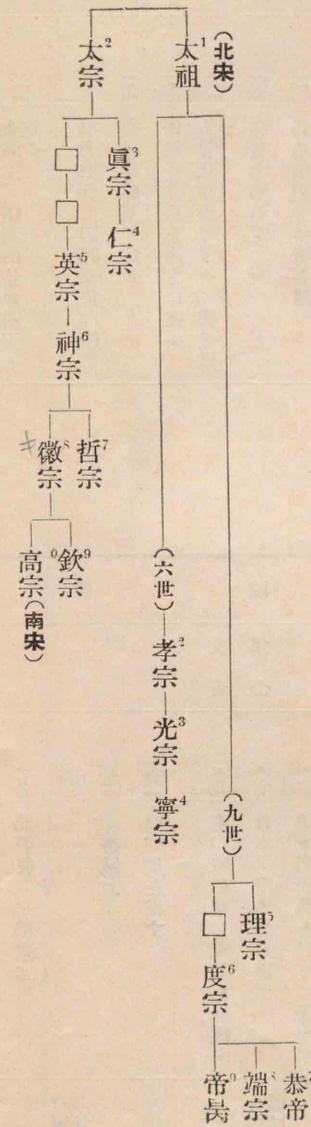 (北宋)
太祖1
太宗2
眞宗3
仁宗4
□
□
英宗5
神宗6
哲宗7
徽宗8
キ
欽宗9
高宗0(南宋)
(六世)
孝宗2
光宗3
寧宗4
(九世)
理宗5
□
度宗6
恭帝7
端宗8
帝昺9